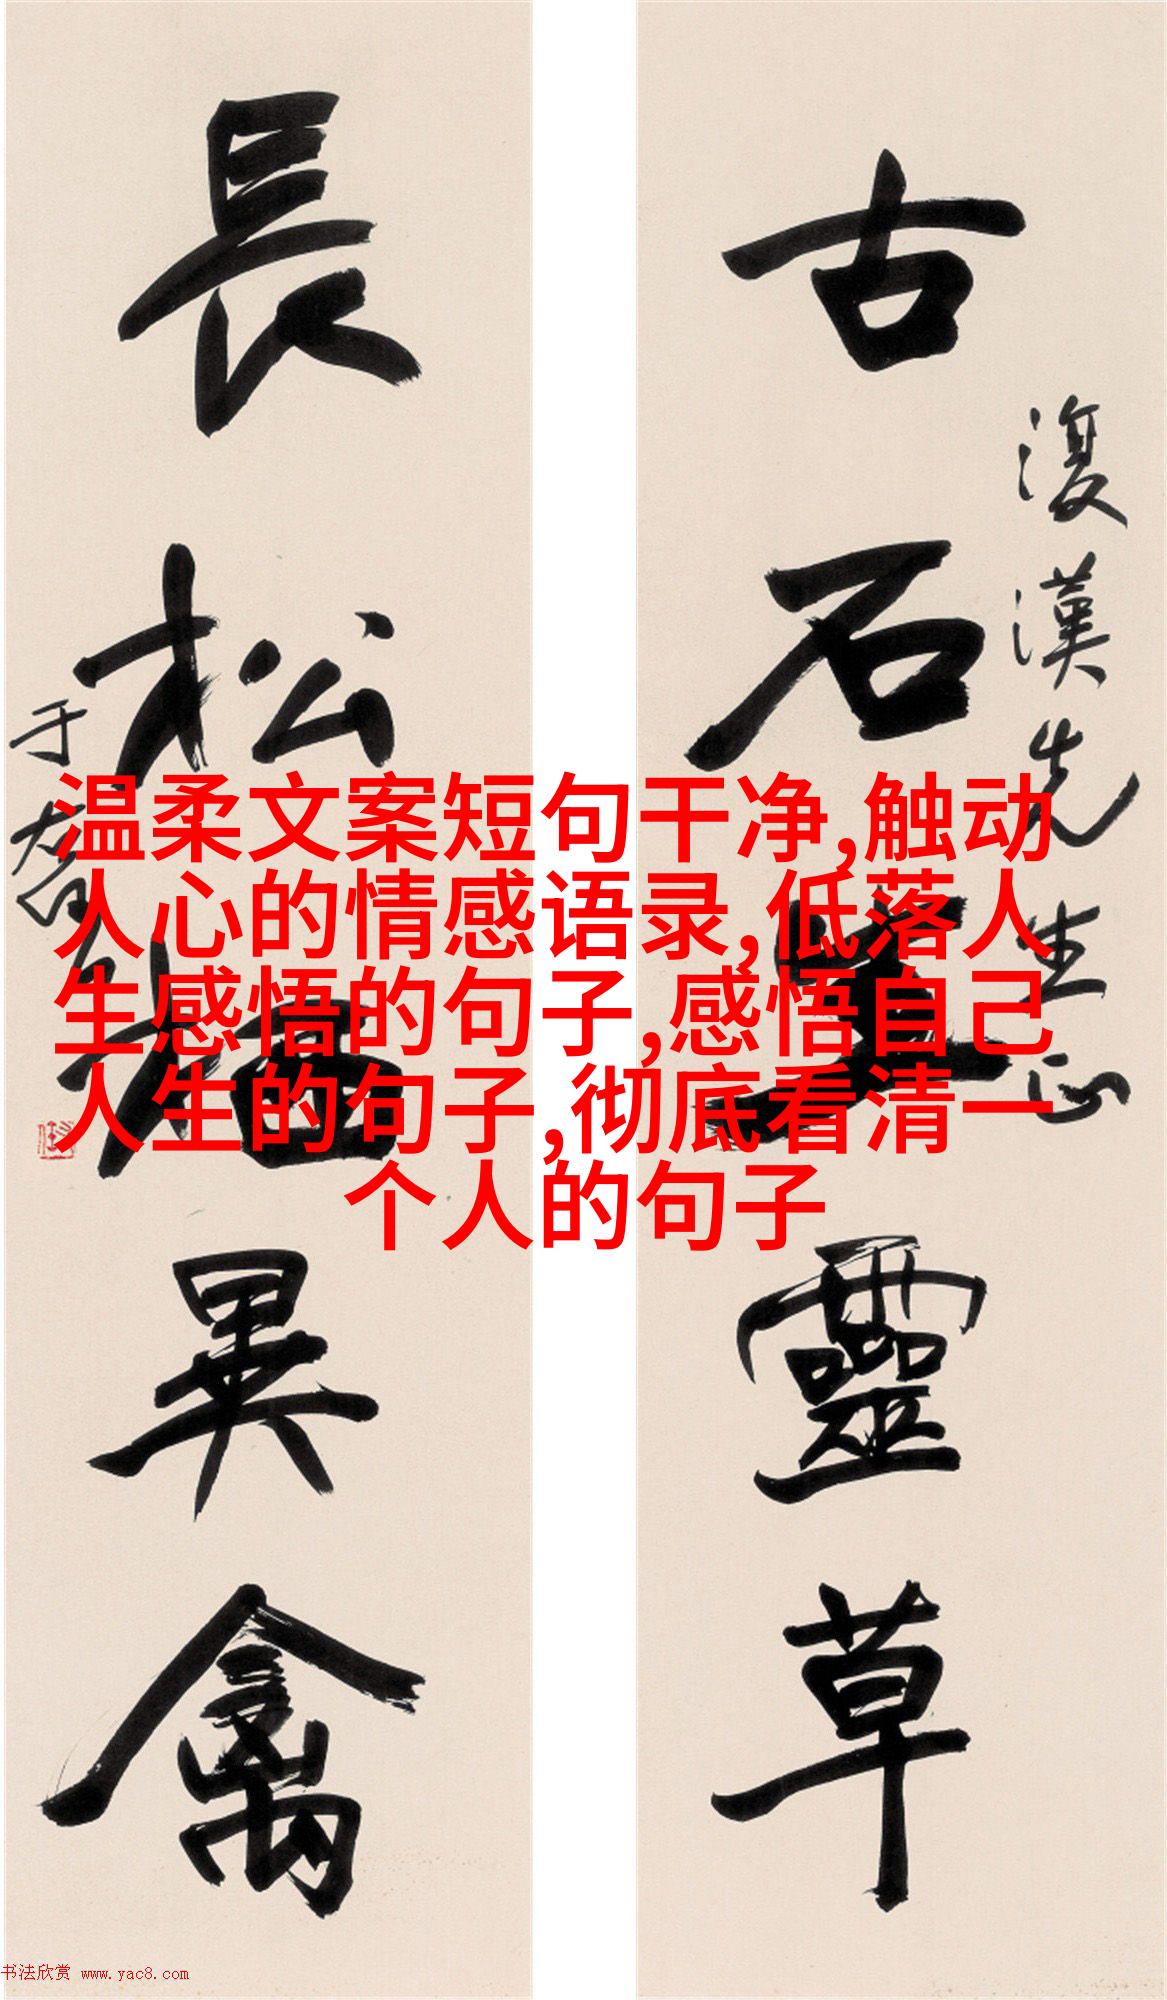 古石生靈草
復漢先生正
長松栖異禽
于右任
温柔文案短句干净,触动
人心的情感语录,低落人
生感悟的句子,感悟自己
人生的句子,彻底看清一
个人的句子
书法欣赏 www.yac8.com